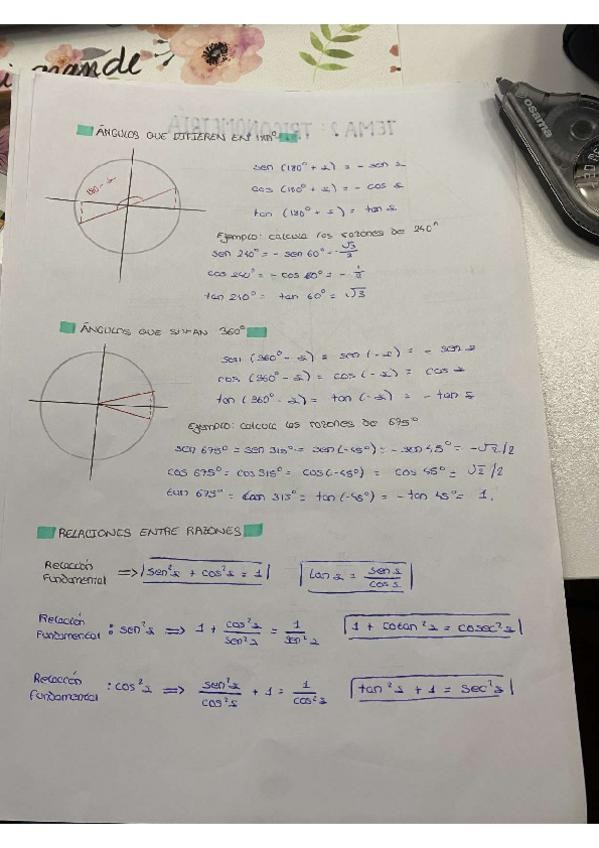 ande
osama
TEMA 2: TRIGONOMETRÍA
ÁNGULOS QUE DIFIEREN EN 180°
180-α
sen (180° + α) = - sen α
cos (180° + α) = - cos α
tan (180° + α) = tan α
Ejemplo: calcula las razones de 240°
sen 240° = - sen 60° = -√3/2
cos 240° = - cos 60° = - 1/2
tan 240° = tan 60° = √3
ÁNGULOS QUE SUMAN 360°
sen (360° - α) = sen (-α) = - sen α
cos (360° - α) = cos (-α) = cos α
tan (360° - α) = tan (-α) = - tan α
Ejemplo: calcula las razones de 675°
sen 675° = sen 315° = sen (-45°) = - sen 45° = -√2/2
cos 675° = cos 315° = cos (-45°) = cos 45° = √2/2
tan 675° = tan 315° = tan (-45°) = - tan 45° = 1.
RELACIONES ENTRE RAZONES
Relacción Fundamental => sen²α + cos²α = 1 tan α = sen α / cos α
Relación Fundamental : sen²α => 1 + cos²α/sen²α = 1/sen²α 1 + cotan²α = cosec²α
Relacción Fundamental : cos²α => sen²α/cos²α + 1 = 1/cos²α tan²α + 1 = sec²α